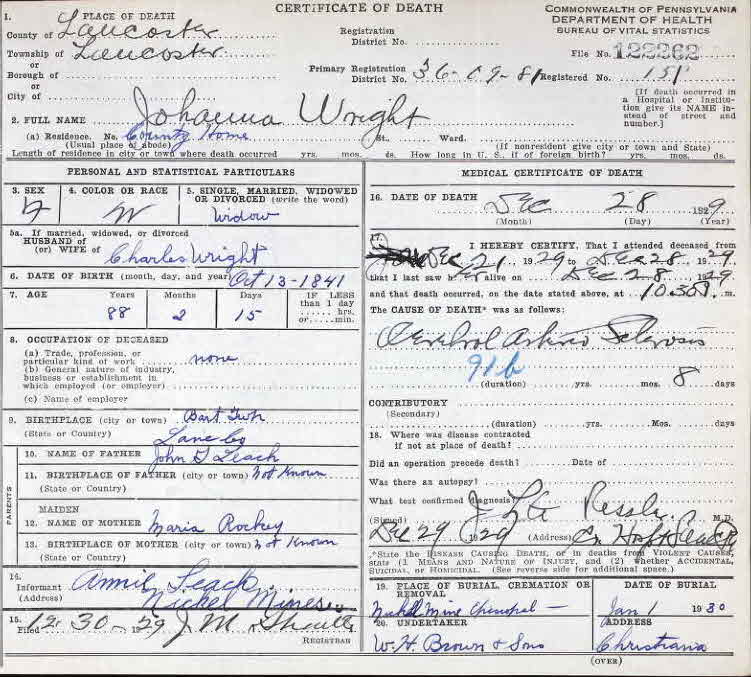 CERTIFICATE OF DEATH
COMMONWEALTH OF PENNSYLVANIA
DEPARTMENT OF HEALTH
BUREAU OF VITAL STATISTICS
1. PLACE OF DEATH
County of Lancaster
Township of Lancaster
or
Borough of
or
City of
Registration
District No.
File No. 122362
Primary Registration
District No. 36-09-81 Registered No. 151
[If death occurred in
a Hospital or Institu-
tion give its NAME in-
stead of street and
number.]
2. FULL NAME Johanna Wright
(a) Residence. No. County Home St., Ward.
(Usual place of abode) (If nonresident give city or town and State)
Length of residence in city or town where death occurred yrs. mos. ds. How long in U. S., if of foreign birth? yrs. mos. ds.
PERSONAL AND STATISTICAL PARTICULARS
3. SEX
F
4. COLOR OR RACE
W
5. SINGLE, MARRIED, WIDOWED
OR DIVORCED (write the word)
Widow
5a. If married, widowed, or divorced
HUSBAND of
(or) WIFE of Charles Wright
6. DATE OF BIRTH (month, day, and year) Oct 13-1841
7. AGE Years Months Days
88 2 15
IF LESS
than 1 day
hrs.
or min.
8. OCCUPATION OF DECEASED
(a) Trade, profession, or
particular kind of work none
(b) General nature of industry,
business or establishment in
which employed (or employer)
(c) Name of employer
9. BIRTHPLACE (city or town) Bart Twp
(State or Country) Lanc Co
PARENTS
10. NAME OF FATHER John G Leach
11. BIRTHPLACE OF FATHER (city or town) Not Known
(State or Country)
MAIDEN
12. NAME OF MOTHER Maria Rockey
13. BIRTHPLACE OF MOTHER (city or town) Not Known
(State or Country)
14.
Informant Annie Leach
(Address) Nickel Mines
15.
Filed 12-30-1929 J M
REGISTRAR
MEDICAL CERTIFICATE OF DEATH
16. DATE OF DEATH
Dec 28 1929
(Month) (Day) (Year)
17.
I HEREBY CERTIFY, That I attended deceased from
Dec 21 1929 to Dec 28 1929
that I last saw her alive on Dec 28 1929
and that death occurred, on the date stated above, at 10.30 m.
The CAUSE OF DEATH* was as follows:
Cerebrol Arterio Sclerosis
91b
(duration) yrs. mos. 8 days
CONTRIBUTORY
(Secondary)
(duration) yrs. Mos. days
18. Where was disease contracted
if not at place of death?
Did an operation precede death? Date of
Was there an autopsy?
What test confirmed diagnosis?
(Signed) J Ressler M.D.
Dec 29 1929 (Address)
*State the DISEASE CAUSING DEATH, or in deaths from VIOLENT CAUSES,
state (1 MEANS AND NATURE OF INJURY, and (2) whether ACCIDENTAL,
SUICIDAL, or HOMICIDAL. (See reverse side for additional space.)
19. PLACE OF BURIAL, CREMATION OR
REMOVAL
Nickel Mine
DATE OF BURIAL
Jan 1 1930
20. UNDERTAKER
W. H. Brown & Sons
ADDRESS
Christiana
(OVER)